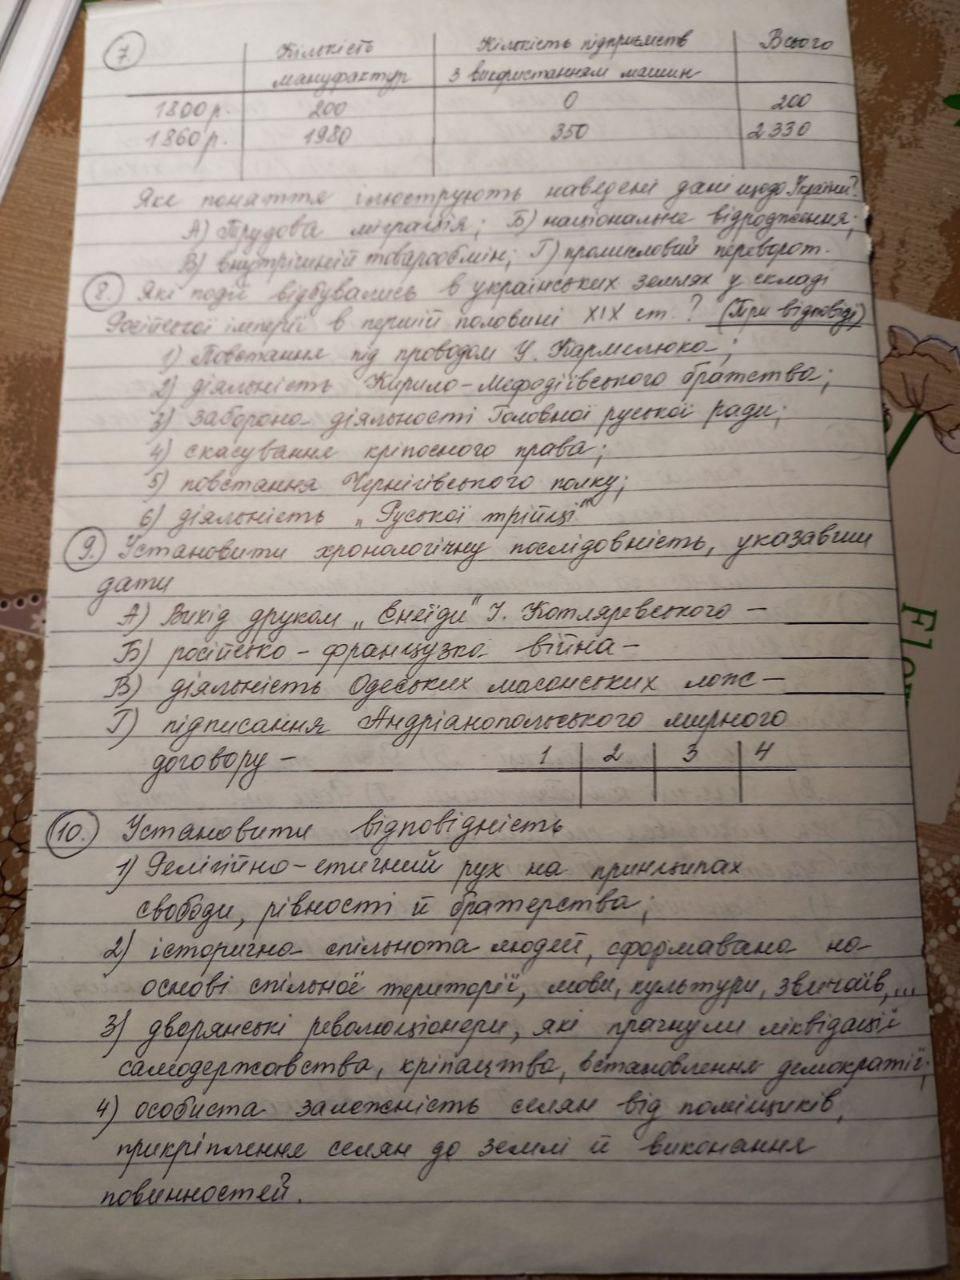 7. Кількість мануфактур Кількість підприємств з використанням машин Всього
1800 р. 200 0 200
1860 р. 1980 350 2330
Яке поняття ілюструють наведені дані щодо України?
А) Трудова міграція; Б) національне відродження;
В) внутрішній товарообмін; Г) промисловий переворот.
8. Які події відбувались в українських землях у складі
Російської імперії в першій половині XIX ст.? (Три відповіді)
1) Повстання під проводом У. Кармелюка;
2) діяльність Кирило-Мефодіївського братства;
3) заборона діяльності Головної руської ради;
4) скасування кріпосного права;
5) повстання Чернігівського полку;
6) діяльність „Руської трійці"
9. Установити хронологічну послідовність, указавши
дати
А) Вихід друком „Енеїди" І. Котляревського –
Б) російсько-французька війна –
В) діяльність Одеських масонських лож –
Г) підписання Андріанопольського мирного
договору – 1 2 3 4
10. Установити відповідність
1) Релігійно-етичний рух на принципах
свободи, рівності й братерства;
2) історична спільнота людей, сформавана на
основі спільної території, мови, культури, звичаїв,...
3) дворянські революціонери, які прагнули ліквідації
самодержавства, кріпацтва, встановлення демократії;
4) особиста залежність селян від поміщиків,
прикріплення селян до землі й виконання
повинностей.